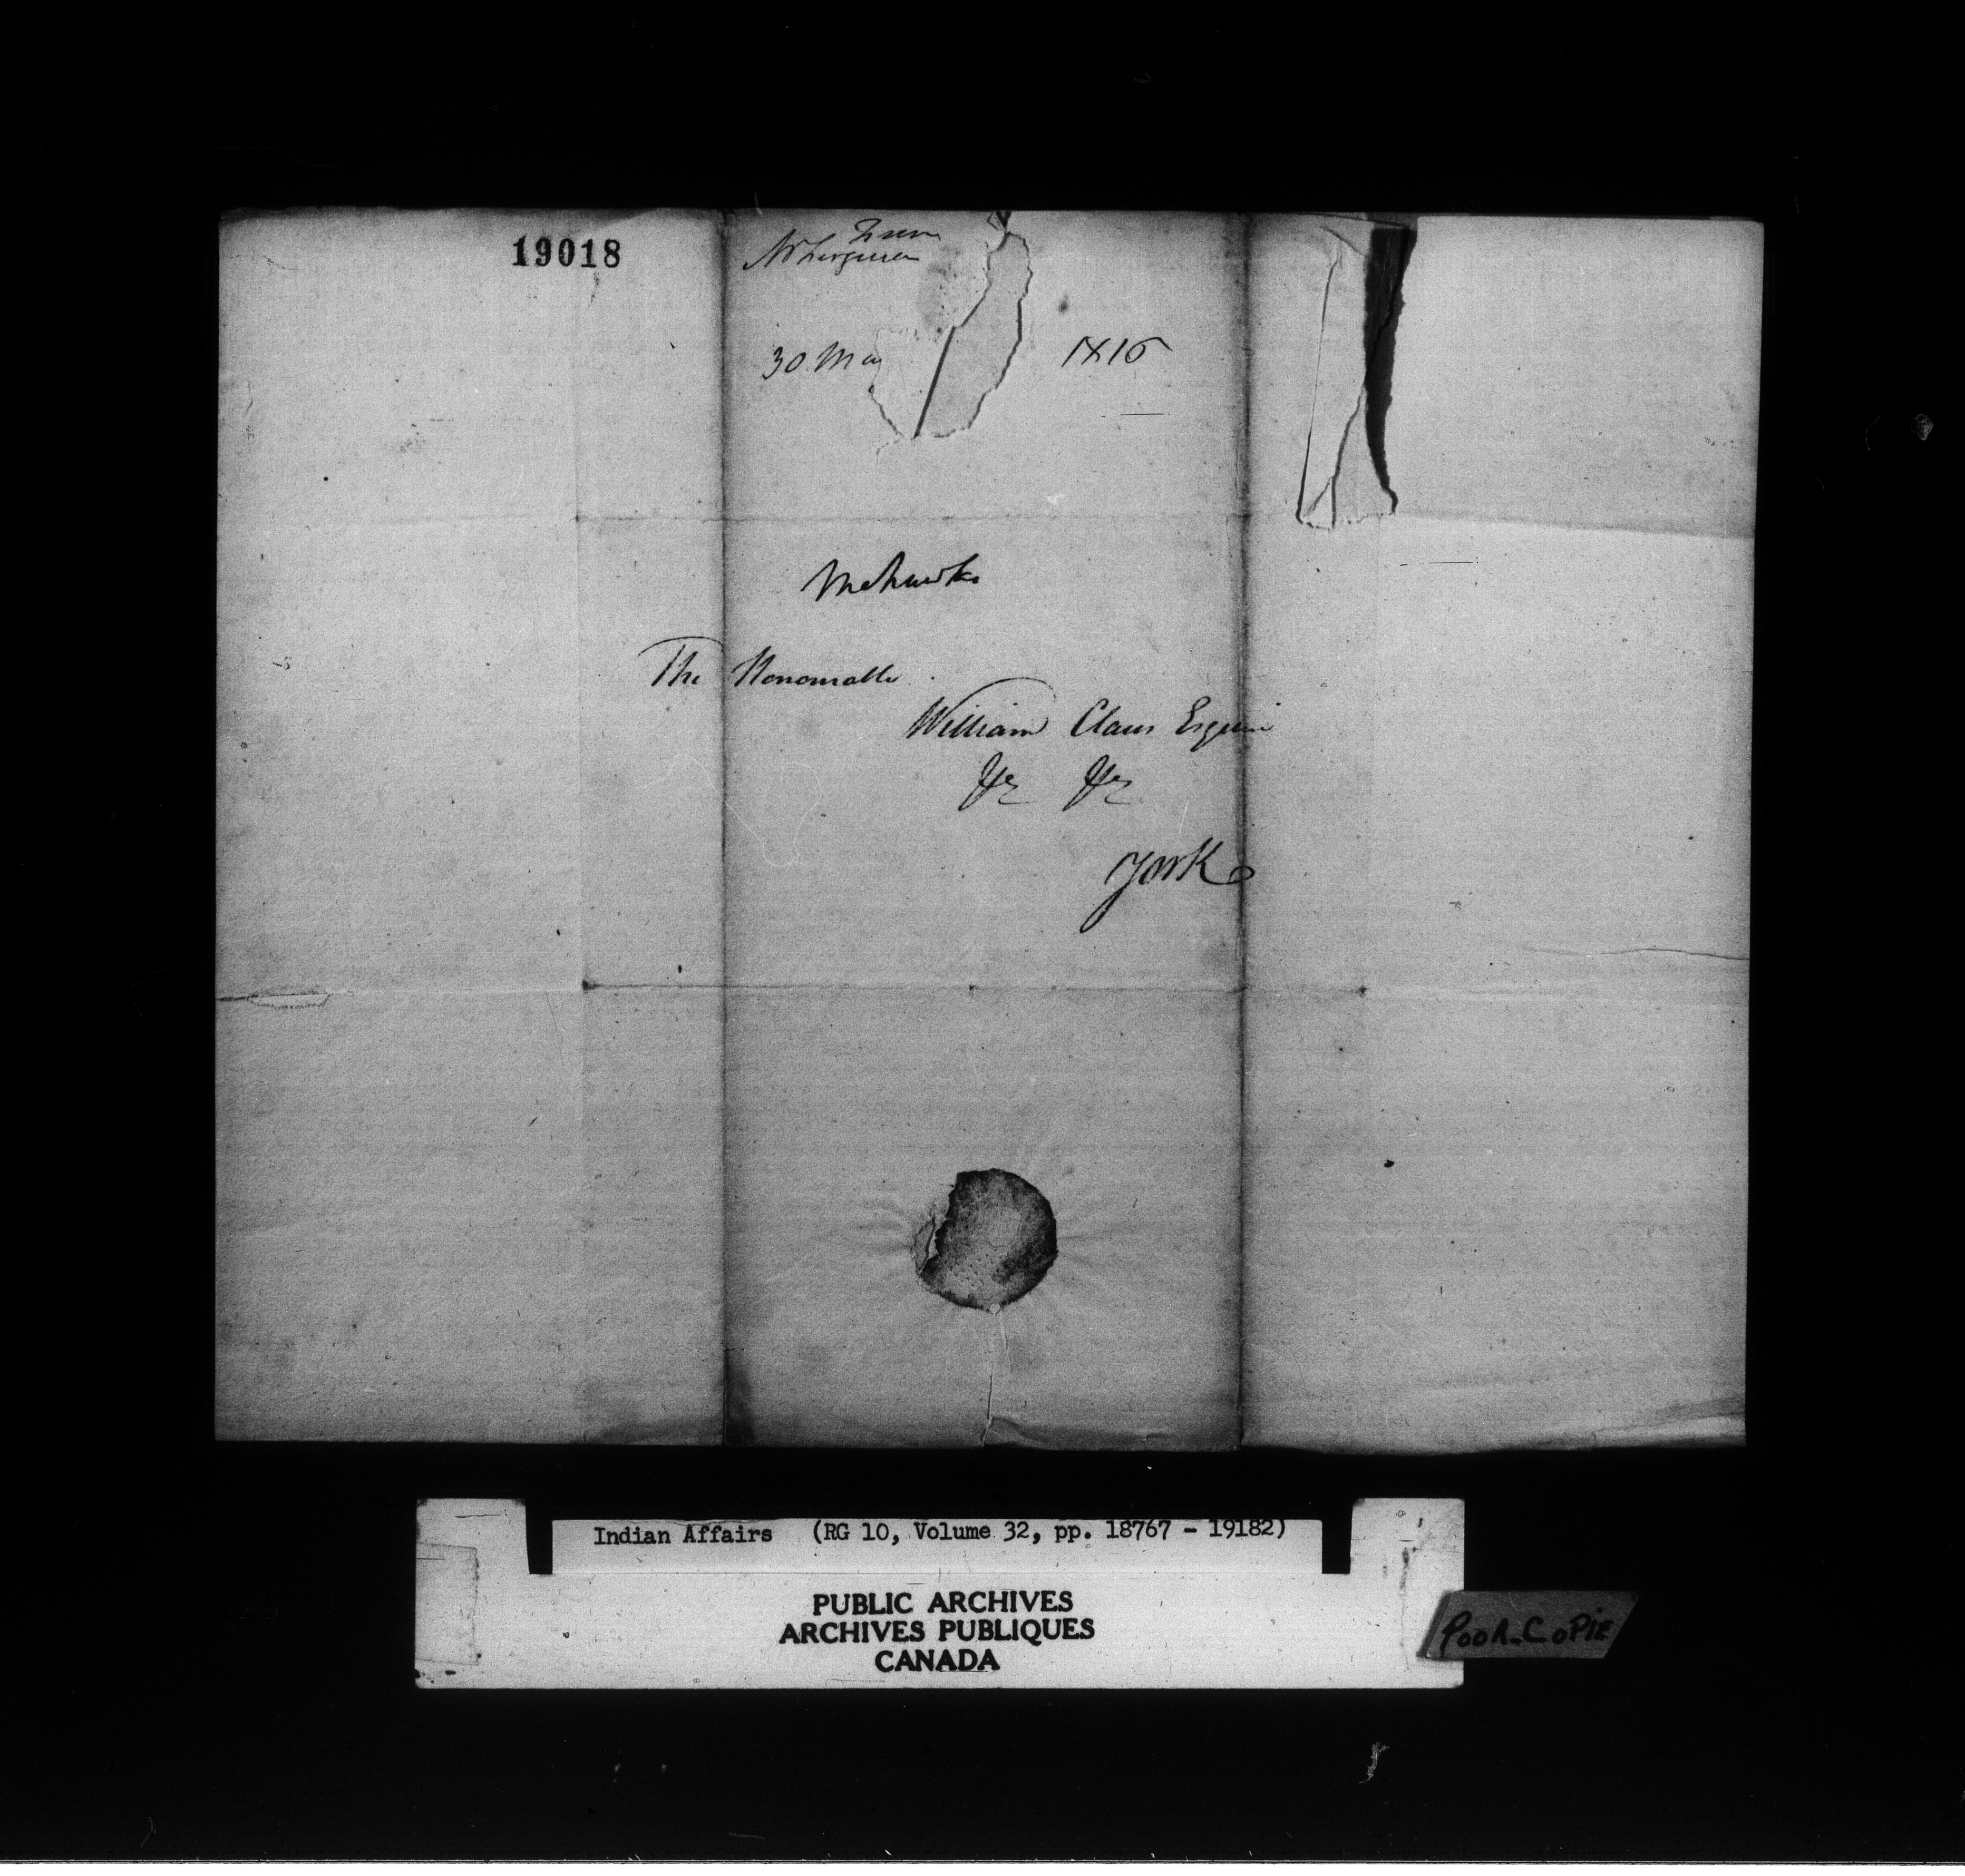 19018
From
Mr Ferguson
30 May 1816
Mohawks
The Honourable
William Claus Esquire
&c &c
York
Indian Affairs (RG 10, Volume 32, pp. 18767 - 19182)
PUBLIC ARCHIVES
ARCHIVES PUBLIQUES
CANADA
POOR-COPIE